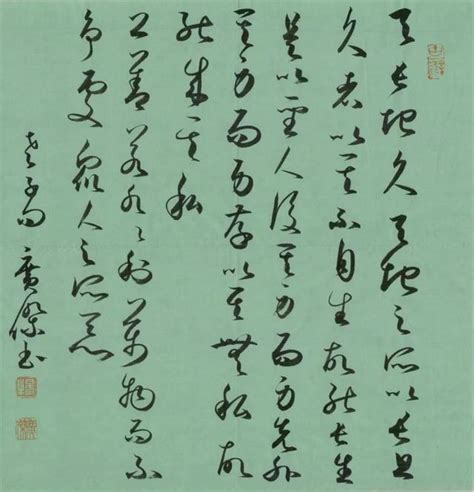 天長地久天地之所以長且
久者以其不自生故能長生
是以聖人後其身而身先外
其身而身存以其無私故
能成其私
上善若水水利萬物而不
爭處眾人之所惡
老子句 廣傑書